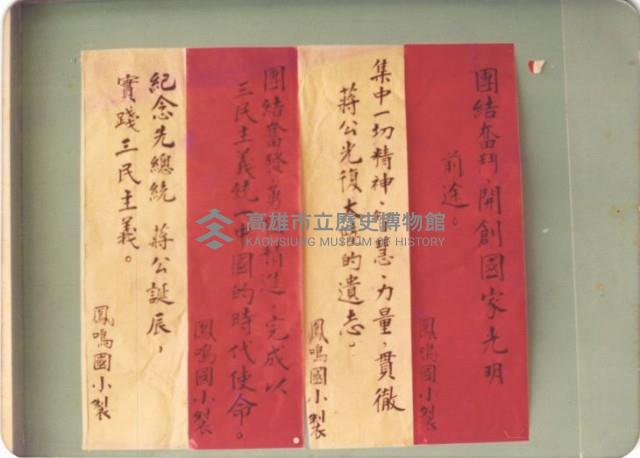 團結奮鬥,開創國家光明
前途。
鳳鳴國小製
集中一切精神、智慧、力量,貫徹
蔣公光復大陸的遺志。
鳳鳴國小製
團結奮發,勇 精進,完成以
三民主義統 中國的時代使命。
鳳鳴國小製
紀念先總統 蔣公誕辰,
實踐三民主義。
鳳鳴國小製
高雄市立歷史博物館
KAOHSIUNG MUSEUM OF HISTORY